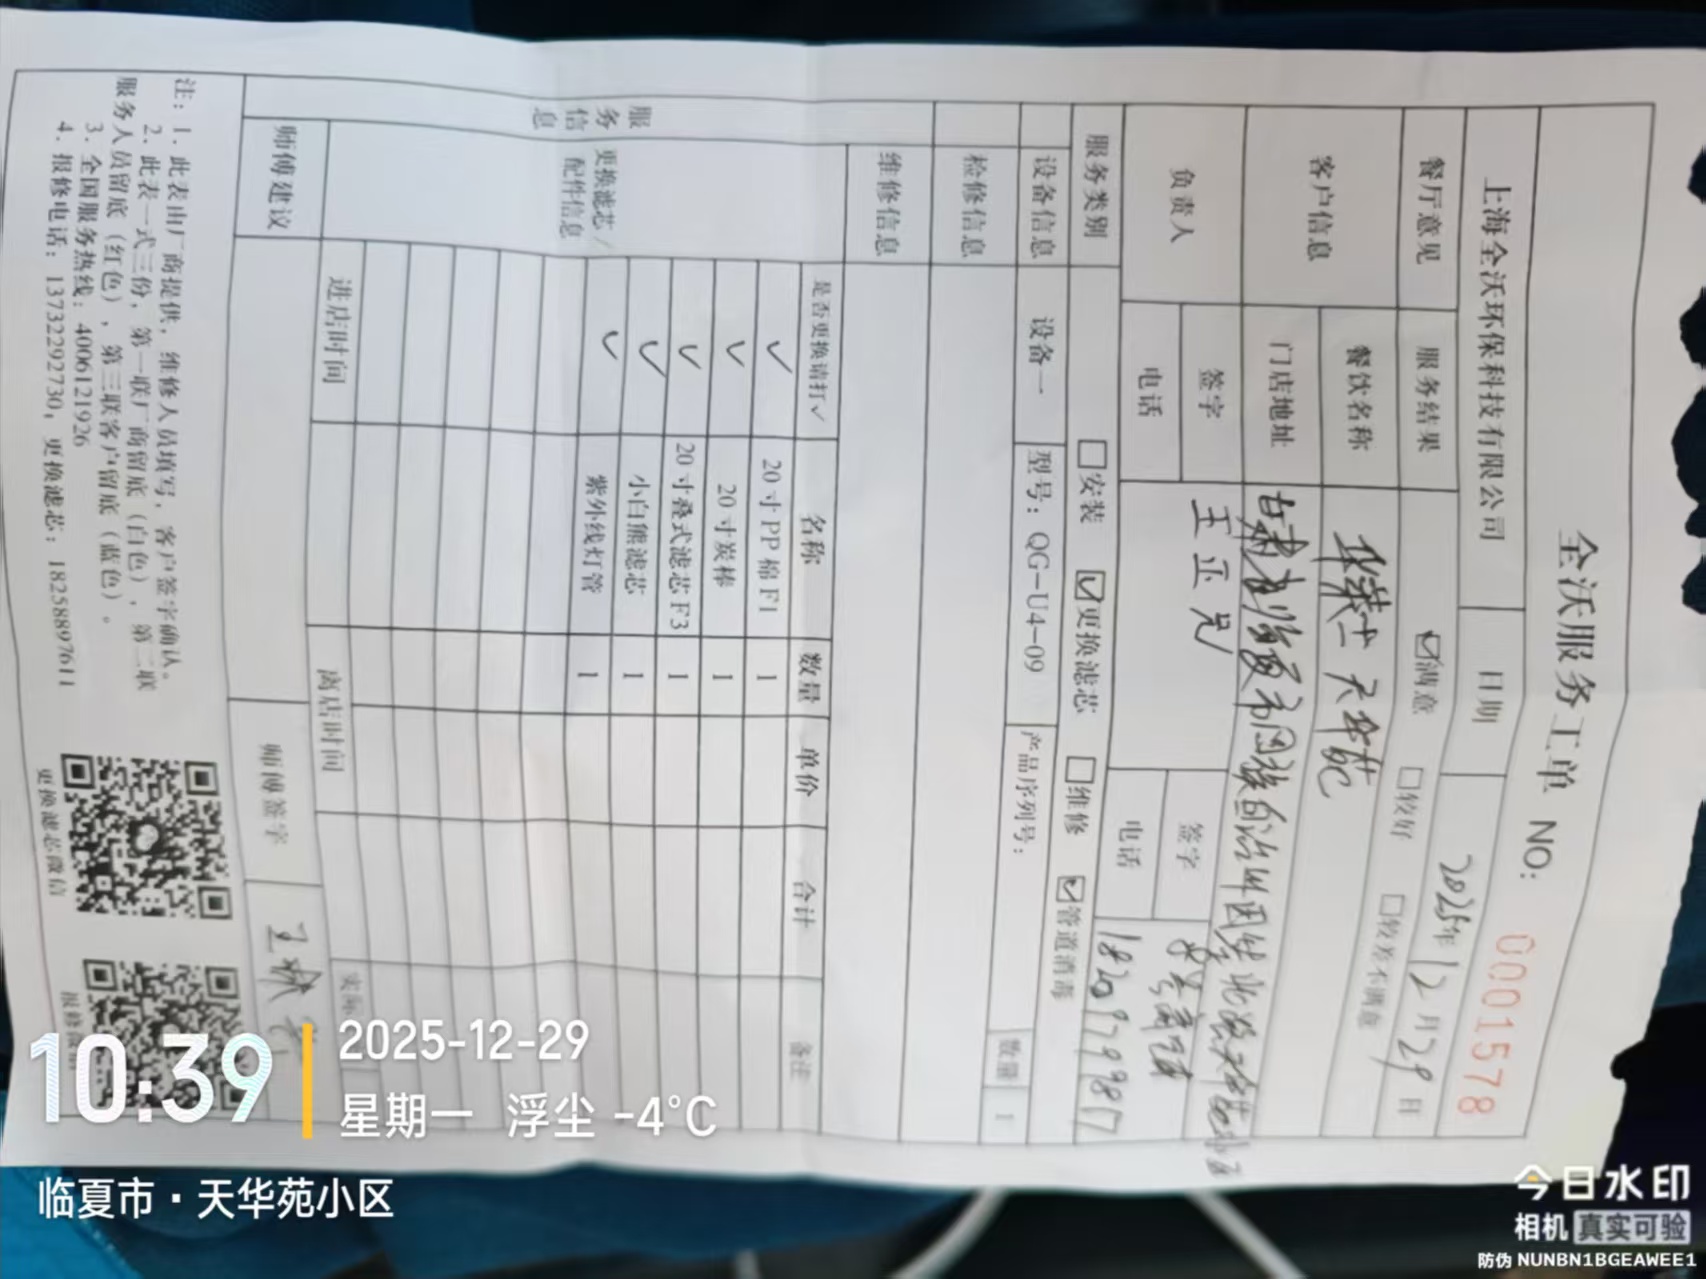 全沃服务工单 NO: 0001578
上海全沃环保科技有限公司 日期 2025年12月29日
餐厅意见 服务结果 ☑满意 □较好 □较差不满意
客户信息 餐饮名称 华莱士 天华苑
门店地址 甘肃省临夏市回族自治州
负责人 签字 签字
电话 电话 18209799817
服务类别 □安装 ☑更换滤芯 □维修 ☑管道消毒
设备信息 设备一 型号：QG-U4-09 产品序列号： 数量 1
检修信息
维修信息
服务信息
更换滤芯/配件信息
是否更换请打✓ 名称 数量 单价 合计 备注
✓ 20寸PP棉F1 1
✓ 20寸炭棒 1
✓ 20寸叠式滤芯F3 1
✓ 小白熊滤芯 1
✓ 紫外线灯管 1
进店时间 离店时间 实际
师傅建议 师傅签字
注：1. 此表由厂商提供，维修人员填写，客户签字确认。
2. 此表一式三份，第一联厂商留底（白色），第二联
服务人员留底（红色），第三联客户留底（蓝色）。
3. 全国服务热线：4006121926
4. 报修电话：13732292730，更换滤芯：18258897611
更换滤芯微信
10:39
2025-12-29
星期一 浮尘 -4°C
临夏市·天华苑小区
今日水印
相机 真实可验
防伪 NUNBN1BGEAWEE1